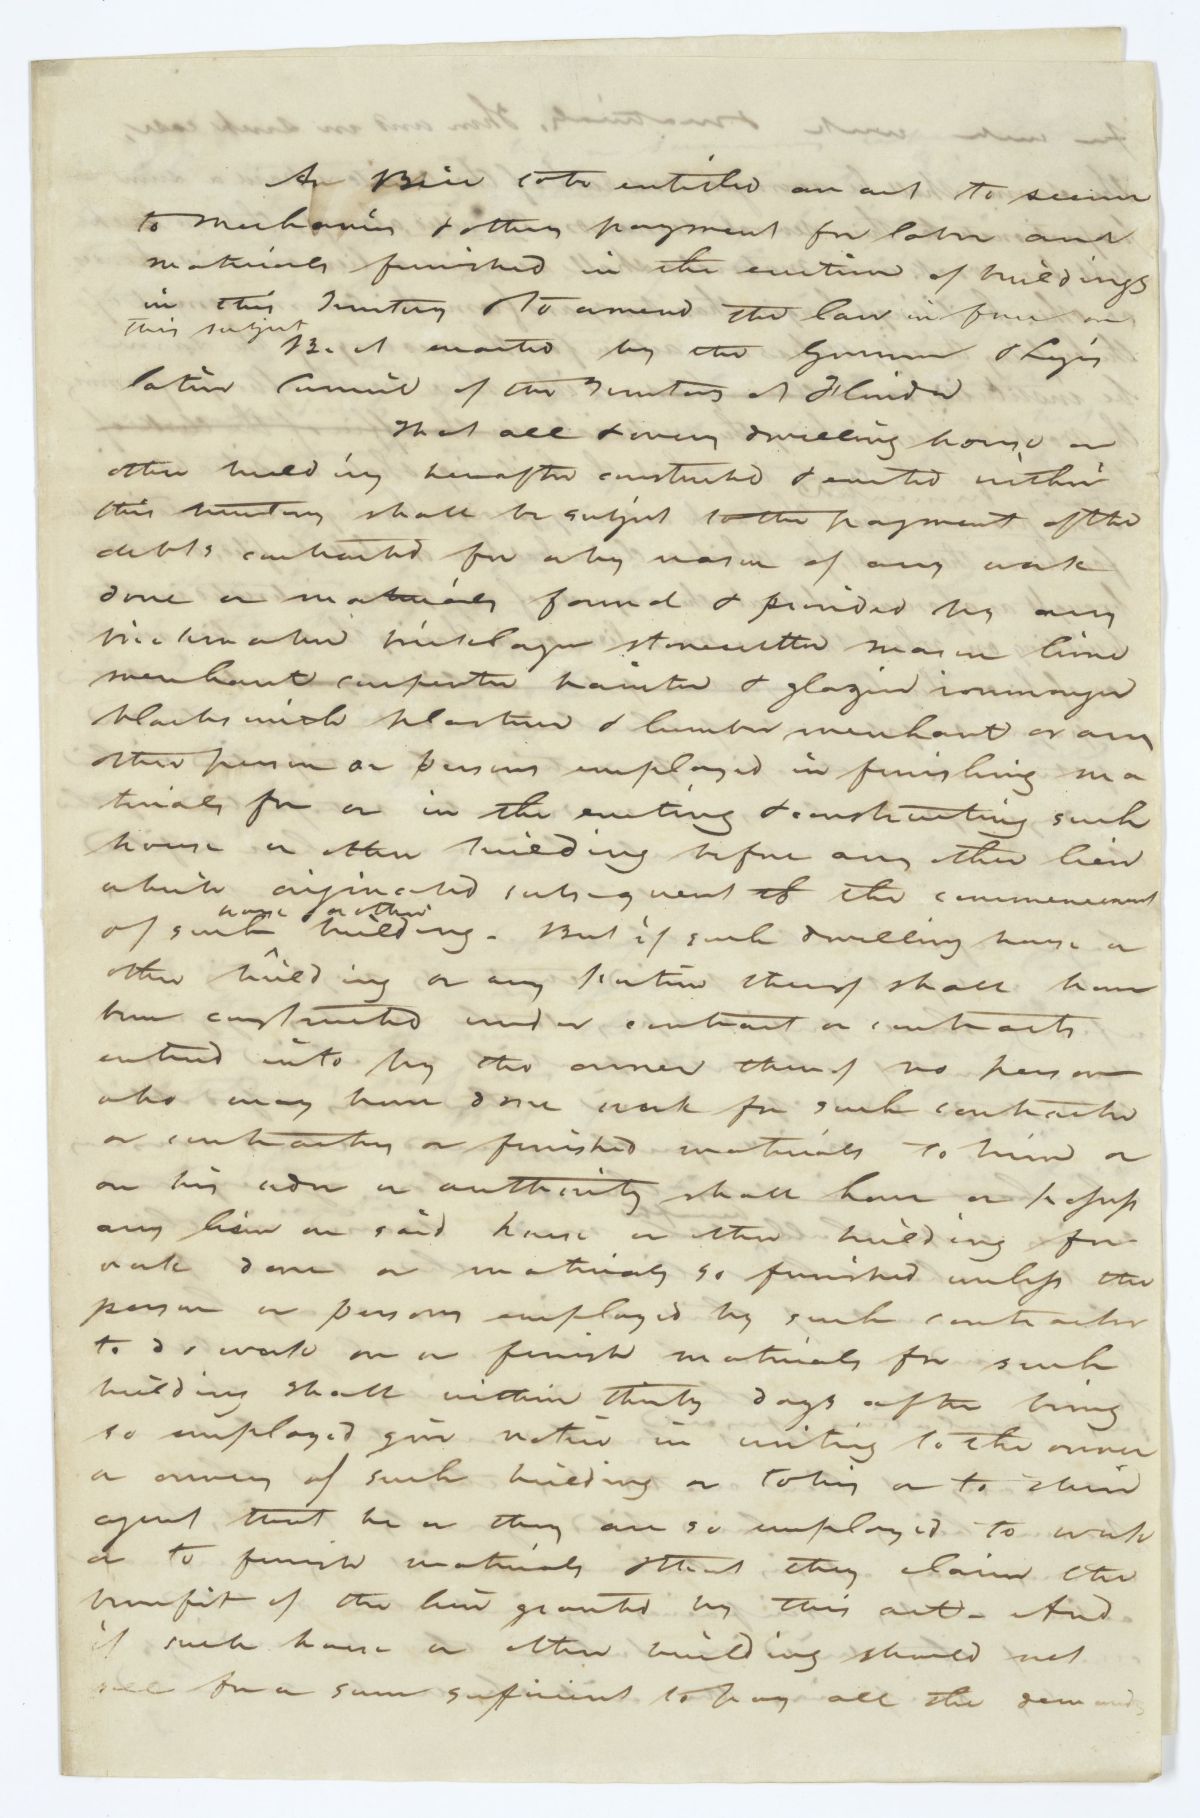 A Bill to be entitled an act to secure
to mechanics & others payment for labor and
materials furnished in the erection of buildings
in this Territory & to amend the law in force on
this subject
Be it enacted by the Governor & Legis
lative Council of the Territory of Florida
That all & every dwelling house or
other building hereafter constructed & erected within
this territory shall be subject to the payment of the
debts contracted for or by reason of any work
done or materials found & provided by any
brickmaker bricklayer stonecutter mason lime
merchant carpenter painter & glazier ironmonger
blacksmith plasterer & lumber merchant or any
other person or persons employed in furnishing ma
terials for or in the erecting & constructing such
house or other building before any other lien
which originated subsequent to the commencement
house or other
of such building. But if such dwelling house or
other building or any portion thereof shall have
been constructed under contract or contracts
entered into by the owner thereof no person
who may have done work for such contractor
or contractors or furnished materials to him or
on his order or authority shall have or possess
any lien on said house or other building for
work done or materials so furnished unless the
person or persons employed by such contractor
to do work on or furnish materials for such
building shall within thirty days after being
so employed give notice in writing to the owner
or owners of such building or to his or to their
agent that he or they are so employed to work
or to furnish materials & that they claim the
benefit of the lien granted by this act. And
if such house or other building should not
sell for a sum sufficient to pay all the demands